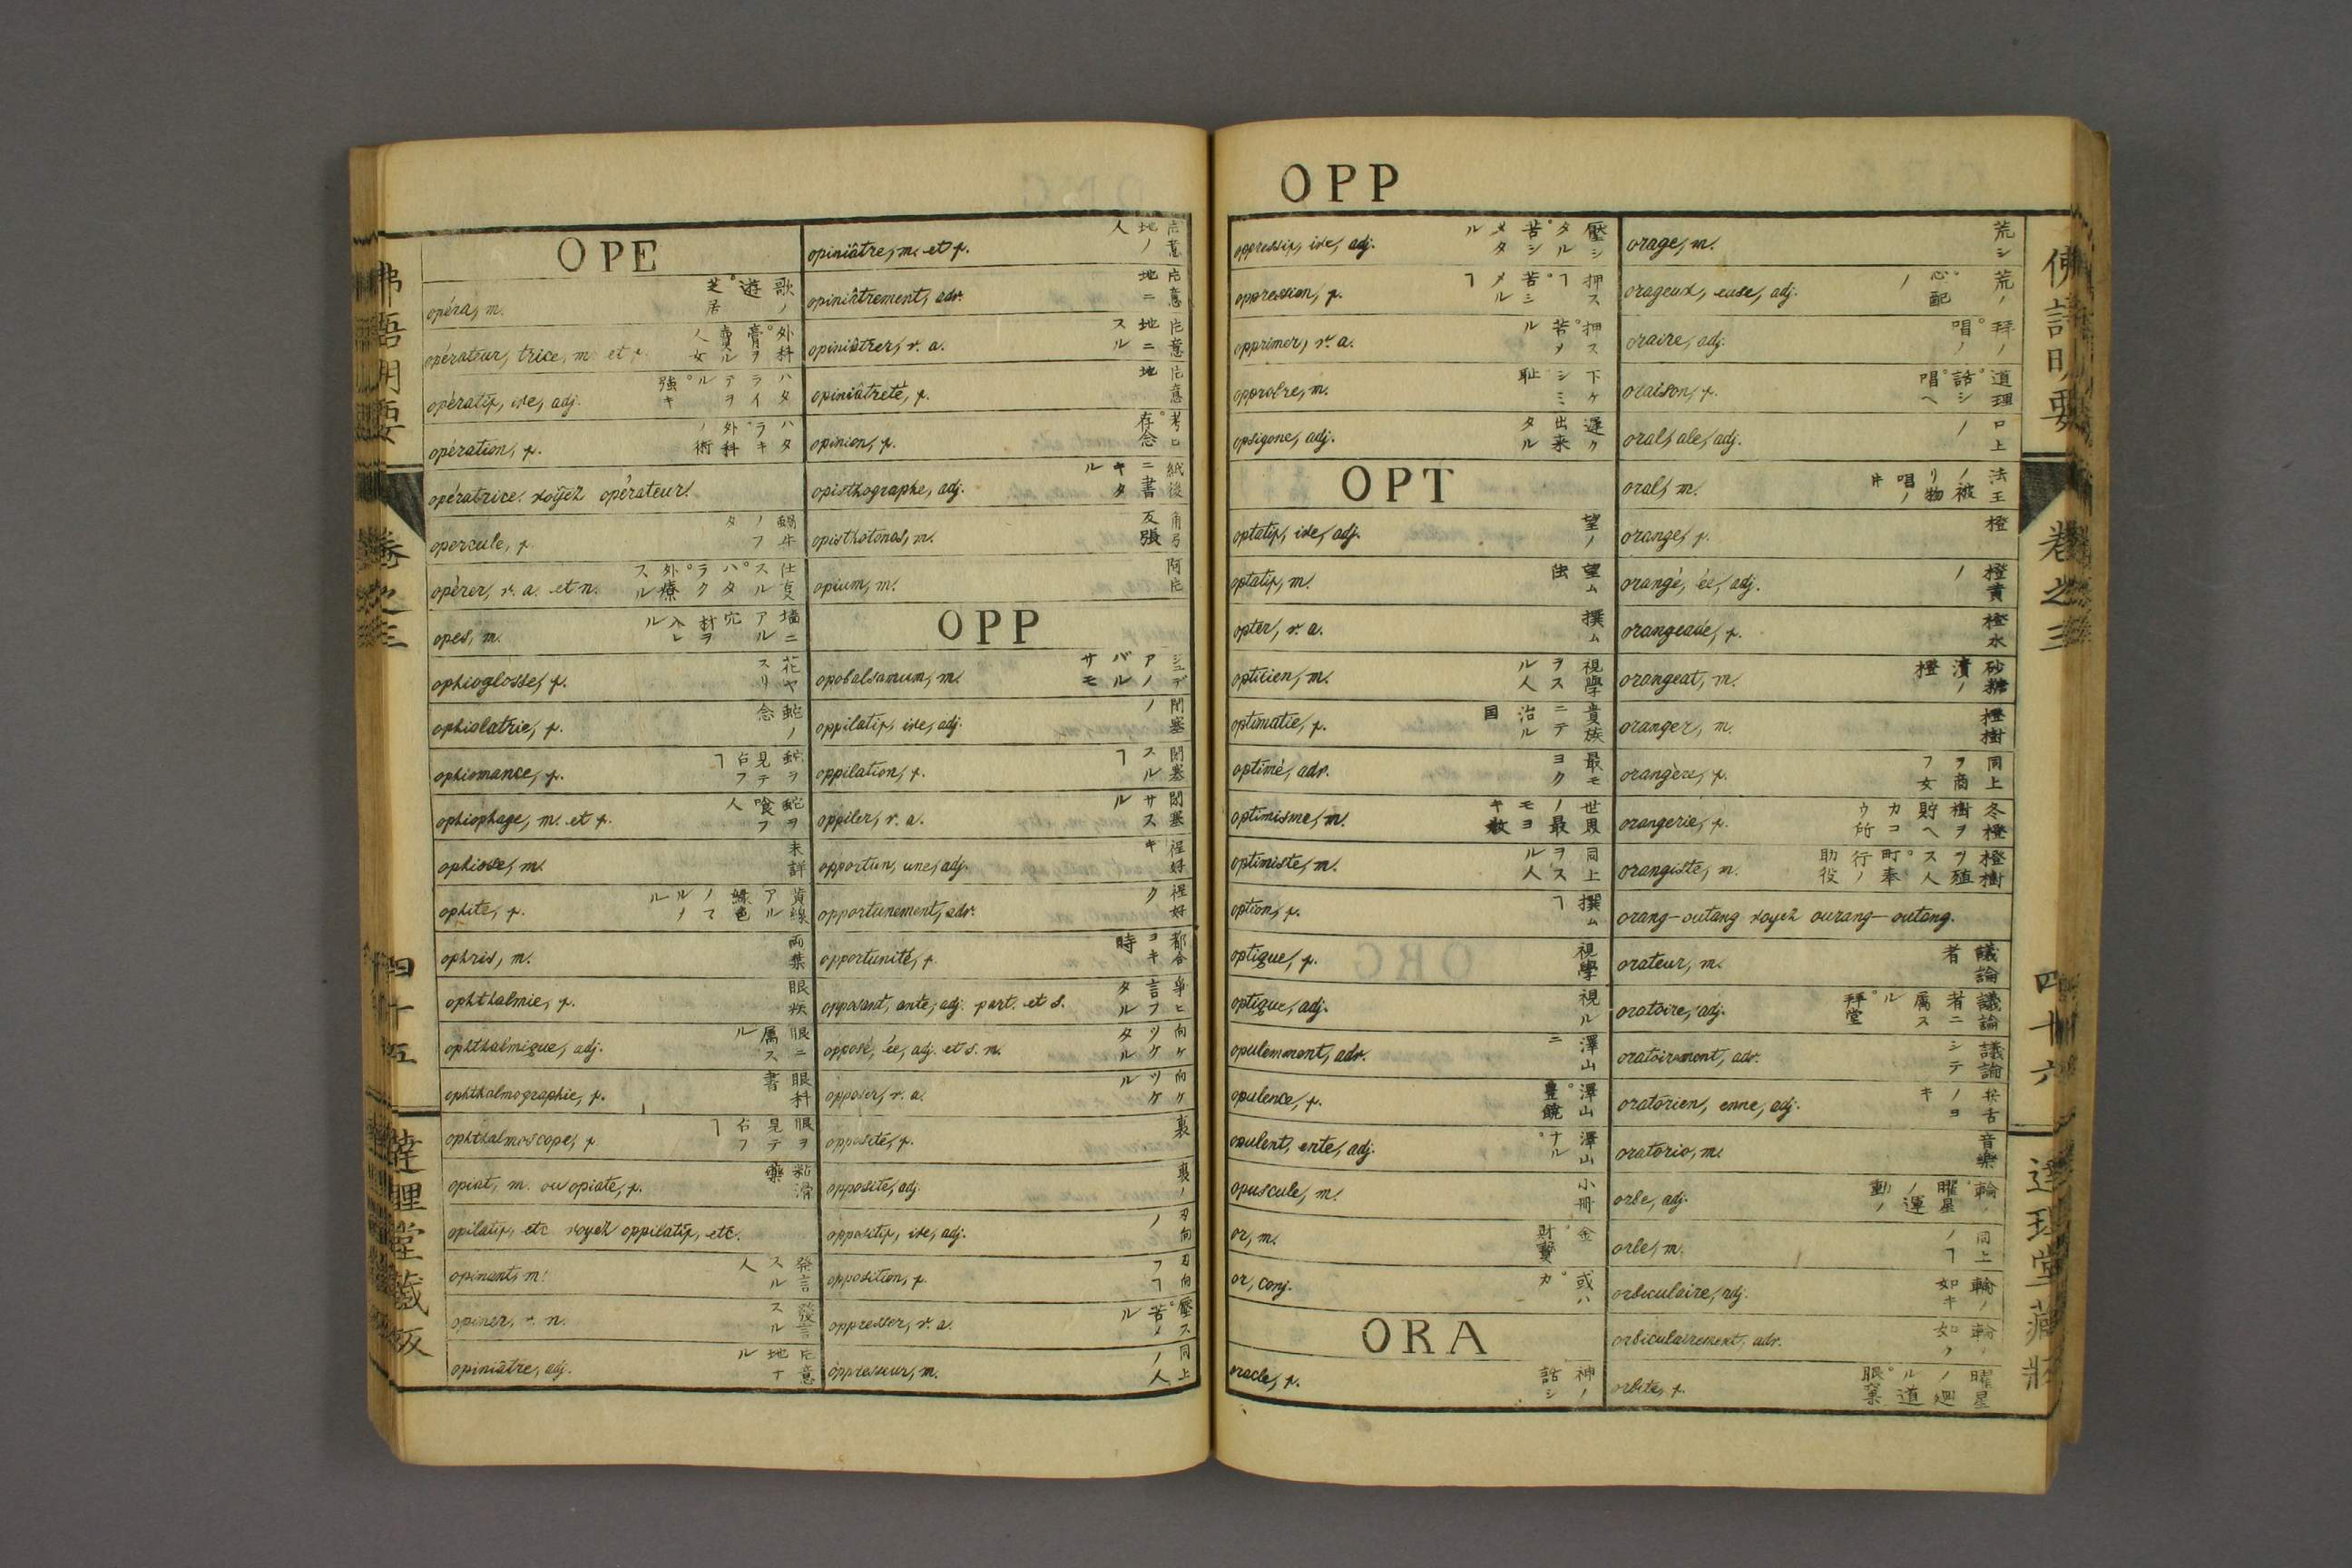 OPE
opéra, m. 歌ノ遊゜芝居
opérateur, trice, m. et f. 外科゜膏ヲ賣ル人女
opératif, ive, adj. ハタライテヲル゜強キ
opération, f. ハタラキ゜外科ノ術
opératrice. voyez opérateur.
opercule, f. 蝸牛ノフタ
opérer, v. a. et n. 仕事スル゜ハタラク゜外療スル
opes, m. 墻ニアル穴材ヲ入レル
ophioglosse, f. 花ヤスリ
ophiolatrie, f. 蛇ノ念
ophiomance, f. 蛇ヲ見テ占フヿ
ophiophage, m. et f. 蛇ヲ喰フ人
ophiose, m. 未詳
ophite, f.
ophris, m. 両葉
ophthalmie, f. 眼疾
ophthalmique, adj. 眼ニ属スル
ophthalmographie, f. 眼科書
ophthalmoscope, f. 眼ヲ見テ占フヿ
opiat, m. ou opiate, f. 粘滑藥
opilatif, etc voyez oppilatif, etc.
opinant, m. 発言スル人
opiner, v. n. 發言スル
opiniâtre, adj. 片意地ナル
opiniâtre, m. et f. 片意地ノ人
opiniâtrement, adv. 片意地ニ
opiniâtrer, v. a. 片意地ニスル
opiniâtreté, f. 片意地
opinion, f. 考ヒ゜存念
opisthographe, adj. 紙後ニ書キタル
opisthotonos, m. 角弓反張
opium, m. 阿片
OPP
opobalsamum, m. ジュデアノバルサモ
oppilatif, ive, adj. 閉塞ノ
oppilation, f. 閉塞スルヿ
oppiler, v. a. 閉塞サスル
opportun, une, adj. 程好キ
opportunement, adv. 程好ク
opportunité, f. 都合ヨキ時
opposant, ante, adj. part. et s. 争ヒ言フタル
opposé, ée, adj. et s. m. 向ケツケタル
opposer, v. a. 向ケツケル
opposite, f. 裏
opposite, adj. 裏ノ
oppositif, ive, adj. 刃向ノ
opposition, f. 刃向フヿ
oppresser, v. a. 壓ス゜苦メル
oppresseur, m. 同上ノ人
OPP
oppressif, ive, adj. 壓シタル゜苦シメタル
oppression, f. 押スヿ゜苦シメルヿ
opprimer, v. a. 押ス゜苦メル
opprobre, m. 下ケシミ゜耻
opsigone, adj. 遅ク出来タル
OPT
optatif, ive, adj. 望ノ
optatif, m. 望ム法
opter, v. a. 撰ム
opticien, m. 視學ヲスル人
optimatie, f. 貴族ニテ治ル国
optimé, adv. 最モヨク
optimisme, m. 世界ノ最モヨキ教
optimiste, m. 同上ヲスル人
option, f. 撰ムヿ
optique, f. 視學
optique, adj. 視ル
opulemment, adv. 澤山ニ
opulence, f. 澤山゜豊饒
opulent, ente, adj. 澤山ナル゜
opuscule, m. 小冊
or, m. 金゜財寶
or, conj. 或ハ゜カ
ORA
oracle, f. 神ノ話シ
orage, m. 荒シ
orageux, euse, adj. 荒ノ゜心配ノ
oraire, adj. 拜ノ゜唱ノ
oraison, f. 道理゜話シ゜唱ヘ
oral, ale, adj. 口上ノ
oral, m. 法王ノ被リ物
orange, f. 橙
orangé, ée, adj. 橙黄ノ
orangeade, f. 橙水
orangeat, m. 砂糖漬ノ橙
oranger, m. 橙樹
orangère, f. 同上ヲ商フ女
orangerie, f. 冬橙樹ヲ貯ヘカコウ所
orangiste, m. 橙樹ヲ殖ス人゜町奉行ノ助役
orang-outang voyez ourang-outang.
orateur, m. 議論者
oratoire, adj. 議論者ニ属スル゜拜堂
oratoirement, adv. 議論シテ
oratorien, enne, adj. 弁舌ノヨキ
oratorio, m. 音樂
orbe, adj. 輪ノ゜曜星ノ運動ノ
orbe, m. 同上ノヿ
orbiculaire, adj. 輪ノ如キ
orbiculairement, adv. 輪ノ如ク
orbite, f. 曜星ノ廻ル道゜眼窠
佛語明要 卷之三 四十六 達理堂藏版
四十五